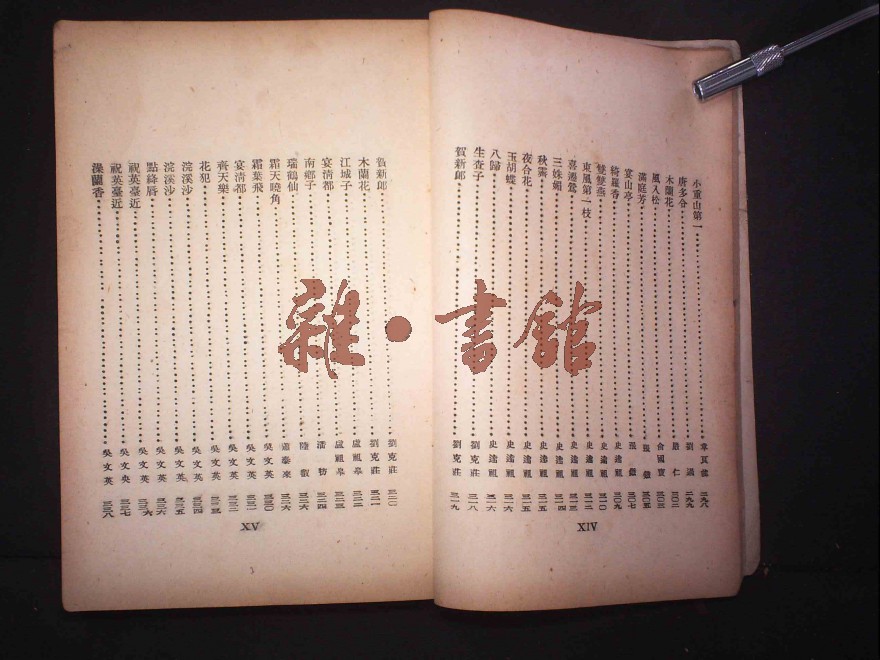 小重山第一 章良能 二九八
唐多令 劉過 二九九
木蘭花 嚴仁 三〇二
風入松 俞國寶 三〇三
滿庭芳 張鎡 三〇五
宴山亭 張鎡 三〇七
綺羅香 史達祖 三〇九
雙雙燕 史達祖 三一〇
東風第一枝 史達祖 三一二
喜遷鶯 史達祖 三一三
三姝媚 史達祖 三一四
秋霽 史達祖 三一五
夜合花 史達祖 三一五
玉胡蝶 史達祖 三一六
八歸 史達祖 三一六
生查子 劉克莊 三一八
賀新郎 劉克莊 三一九
XIV
賀新郎 劉克莊 三二〇
木蘭花 劉克莊 三二一
江城子 盧祖皋 三二二
宴清都 盧祖皋 三二三
南鄉子 潘牥 三二四
瑞鶴仙 陸叡 三二六
霜天曉角 蕭泰來 三二六
霜葉飛 吳文英 三三〇
宴清都 吳文英 三三一
齊天樂 吳文英 三三二
花犯 吳文英 三三四
浣溪沙 吳文英 三三五
浣溪沙 吳文英
點絳唇 吳文英 三三六
祝英臺近 吳文英 三三六
祝英臺近 吳文英 三三七
澡蘭香 吳文英 三三八
XV
雜·書館